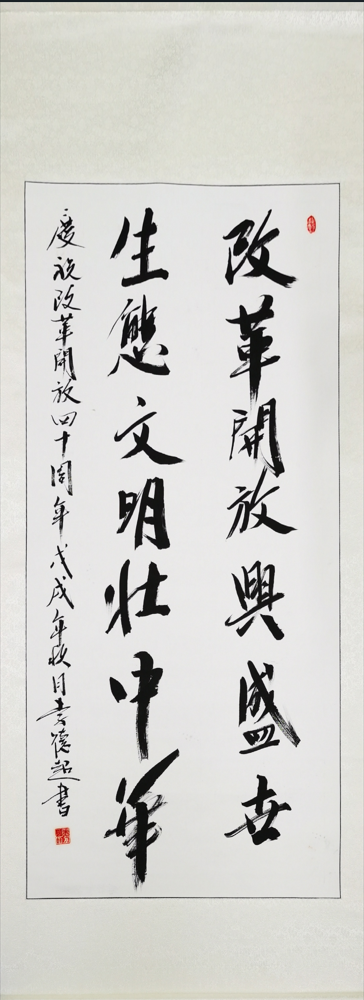 改革開放興盛世
生態文明壯中華
慶祝改革開放四十周年戊戌年秋月李德超書